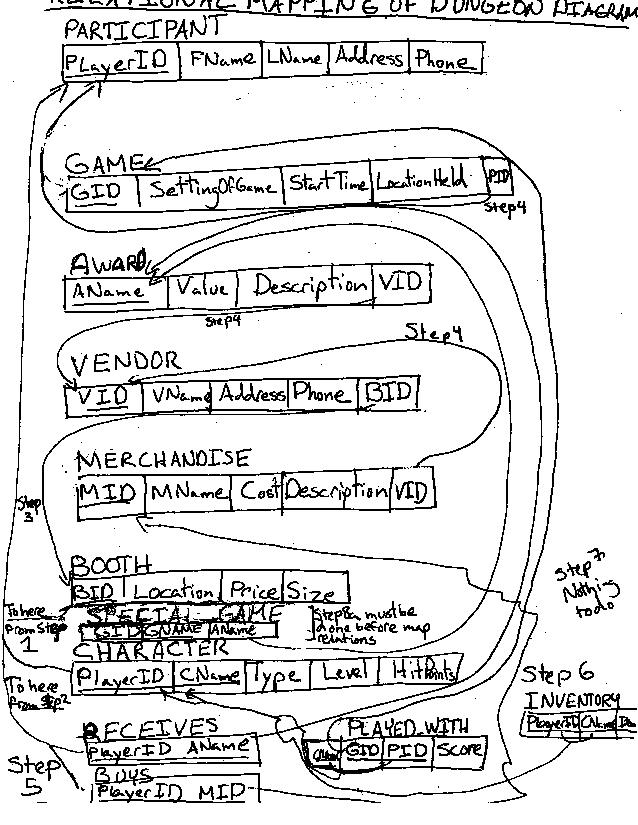 RELATIONAL MAPPING OF DUNGEON DIAGRAM
PARTICIPANT
PLayerID FName LName Address Phone
GAME
GID SettingOfGame StartTime LocationHeld PID
Step4
AWARD
AName Value Description VID
Step4
Step4
VENDOR
VID VName Address Phone BID
MERCHANDISE
MID MName Cost Description VID
Step 3
BOOTH
BID Location Price Size
Step 7
Nothing
to do
To here
From Step
1
SPECIAL GAME
GID GNAME AName
Step 8a must be
done before map
relations
CHARACTER
PlayerID CName Type Level HitPoints
To here
From Step2
Step 6
INVENTORY
PlayerID CName
RECEIVES
PlayerID AName
PLAYED WITH
GID PID Score
Step
5
BUYS
PlayerID MID